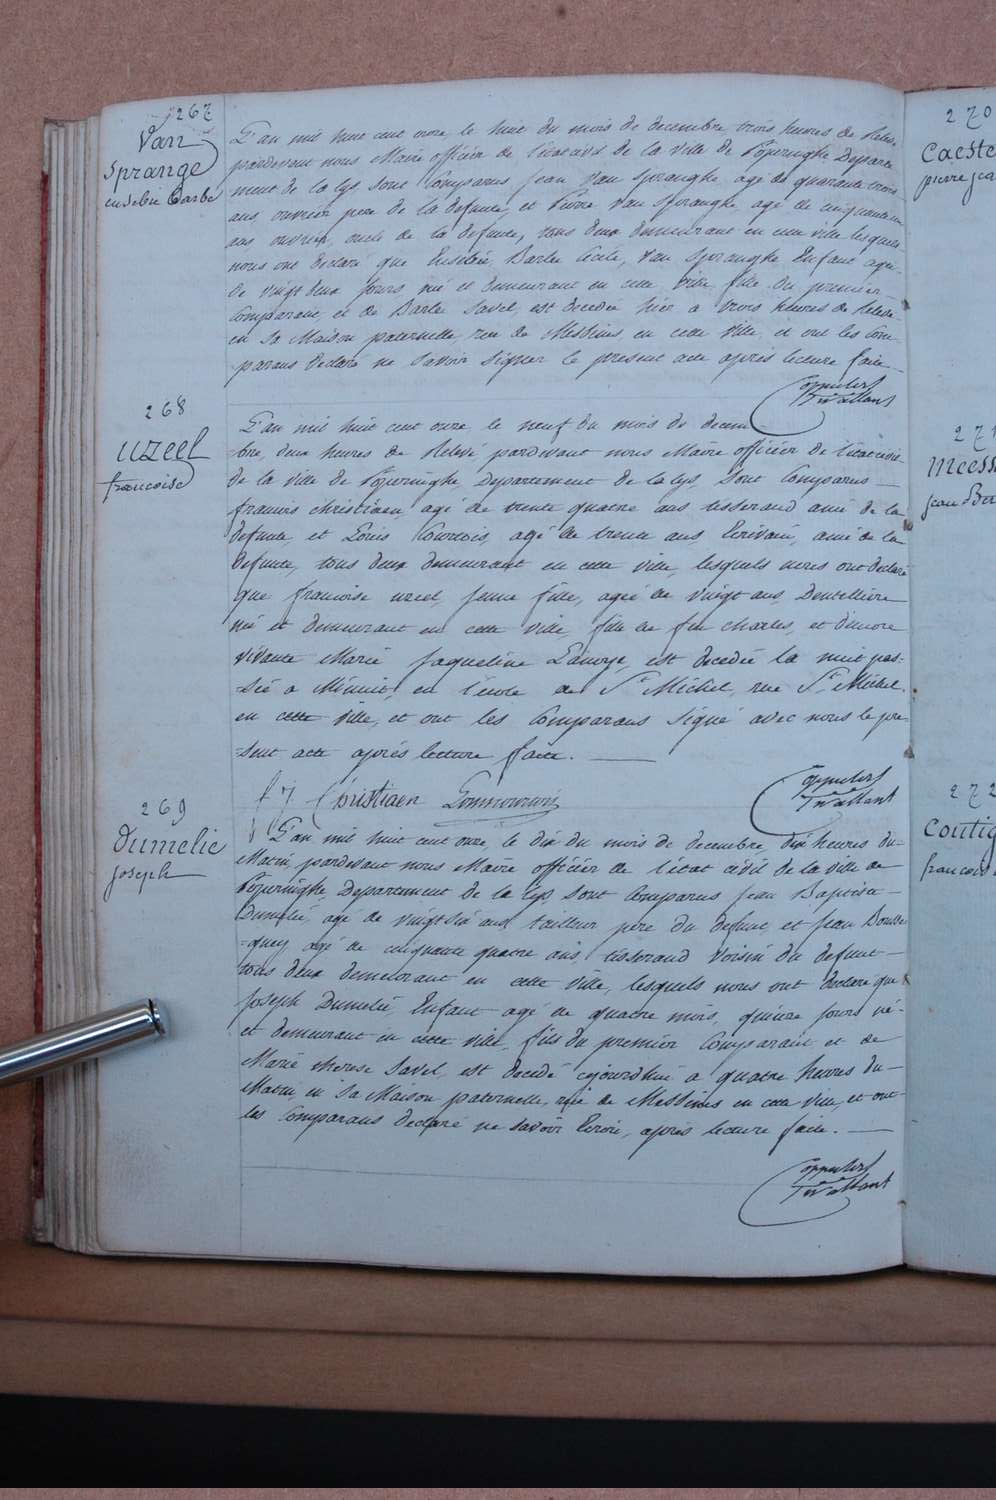 267
Van
Sprange
Eusebie Barbe
L'an mil huit cent onze, le huit du mois de decembre, trois heures de Relev.
pardevant nous Maire officier de l'etat civil de la ville de Poperinghe Departe
ment de la Lys, sont Comparus Jean Van Spranghe agé de quarante trois
ans, ouvrier pere de la defunte, et Pierre Van Spranghe, agé de cinquante un
ans ouvrier, oncle de la defunte, tous deux demeurant en cette ville lesquels
nous ont declaré que Eusebie, Barbe Cecile, Van Spranghe, Enfant agé-
de vingt deux jours né et demeurant en cette ville fille du premier
Comparant, et de Barbe Savel, est decedée hier a trois heures de Relevé
en Sa Maison paternelle, rue de Messines, en cette Ville, et ont les Com-
parans declaré ne Savoir Signer le present acte après lecture faite
268
uzeel
francoise
L'an mil huit cent onze, le neuf du mois de decem
-bre, deux heures de Relevé pardevant nous Maire officier de l'état civil
de la Ville de Poperinghe, Departement de la Lys, sont Comparus —
francois Christiaen, agé de trente quatre ans tisserand ami de la
defunte, et Louis Courtois, agé de trente ans, Ecrivain, ami de la
defunte, tous deux demeurant en cette ville, lesquels nous ont declaré
que francoise uzeel, jeune fille, agée de vingt ans, Dentellière
né et demeurant en cette ville, fille de feu Charles, et d'encore
vivante Marie Jaqueline, est decedée la nuit pas=
sée a Minuit, en l'école de St Michel, rue St Michel.
en cette Ville, et ont les Comparans Signé avec nous le pre-
=sent acte après lecture faite. —
f j Christiaen
269
Dumelie
joseph
L'an mil huit cent onze, le dix du mois de decembre, dix heures du-
Matin, pardevant nous Maire officier de l'état civil de la ville de
Poperinghe, Departement de la Lys sont Comparus Jean Baptiste —
Dumelié, agé de vingt six ans tailleur pere du defunt, et Jean Bousse
=quey agé de cinquante quatre ans, tisserand Voisin du defunt —
tous deux demeurant en cette Ville, lesquels nous ont declaré que
Joseph Dumelié, Enfant agé de quatre mois, quinze jours né-
et demeurant en cette ville, fils du premier Comparant et de
Marie therese Savel, est decedé cejourdhui a quatre heures du-
Matin, en Sa Maison paternelle, rue de Messines en cette Ville, et ont-
les Comparans declaré ne savoir Ecrire, après lecture faite. —
270
Caeste
pierre jea
271
Meess
jean
272
Coutig
francois